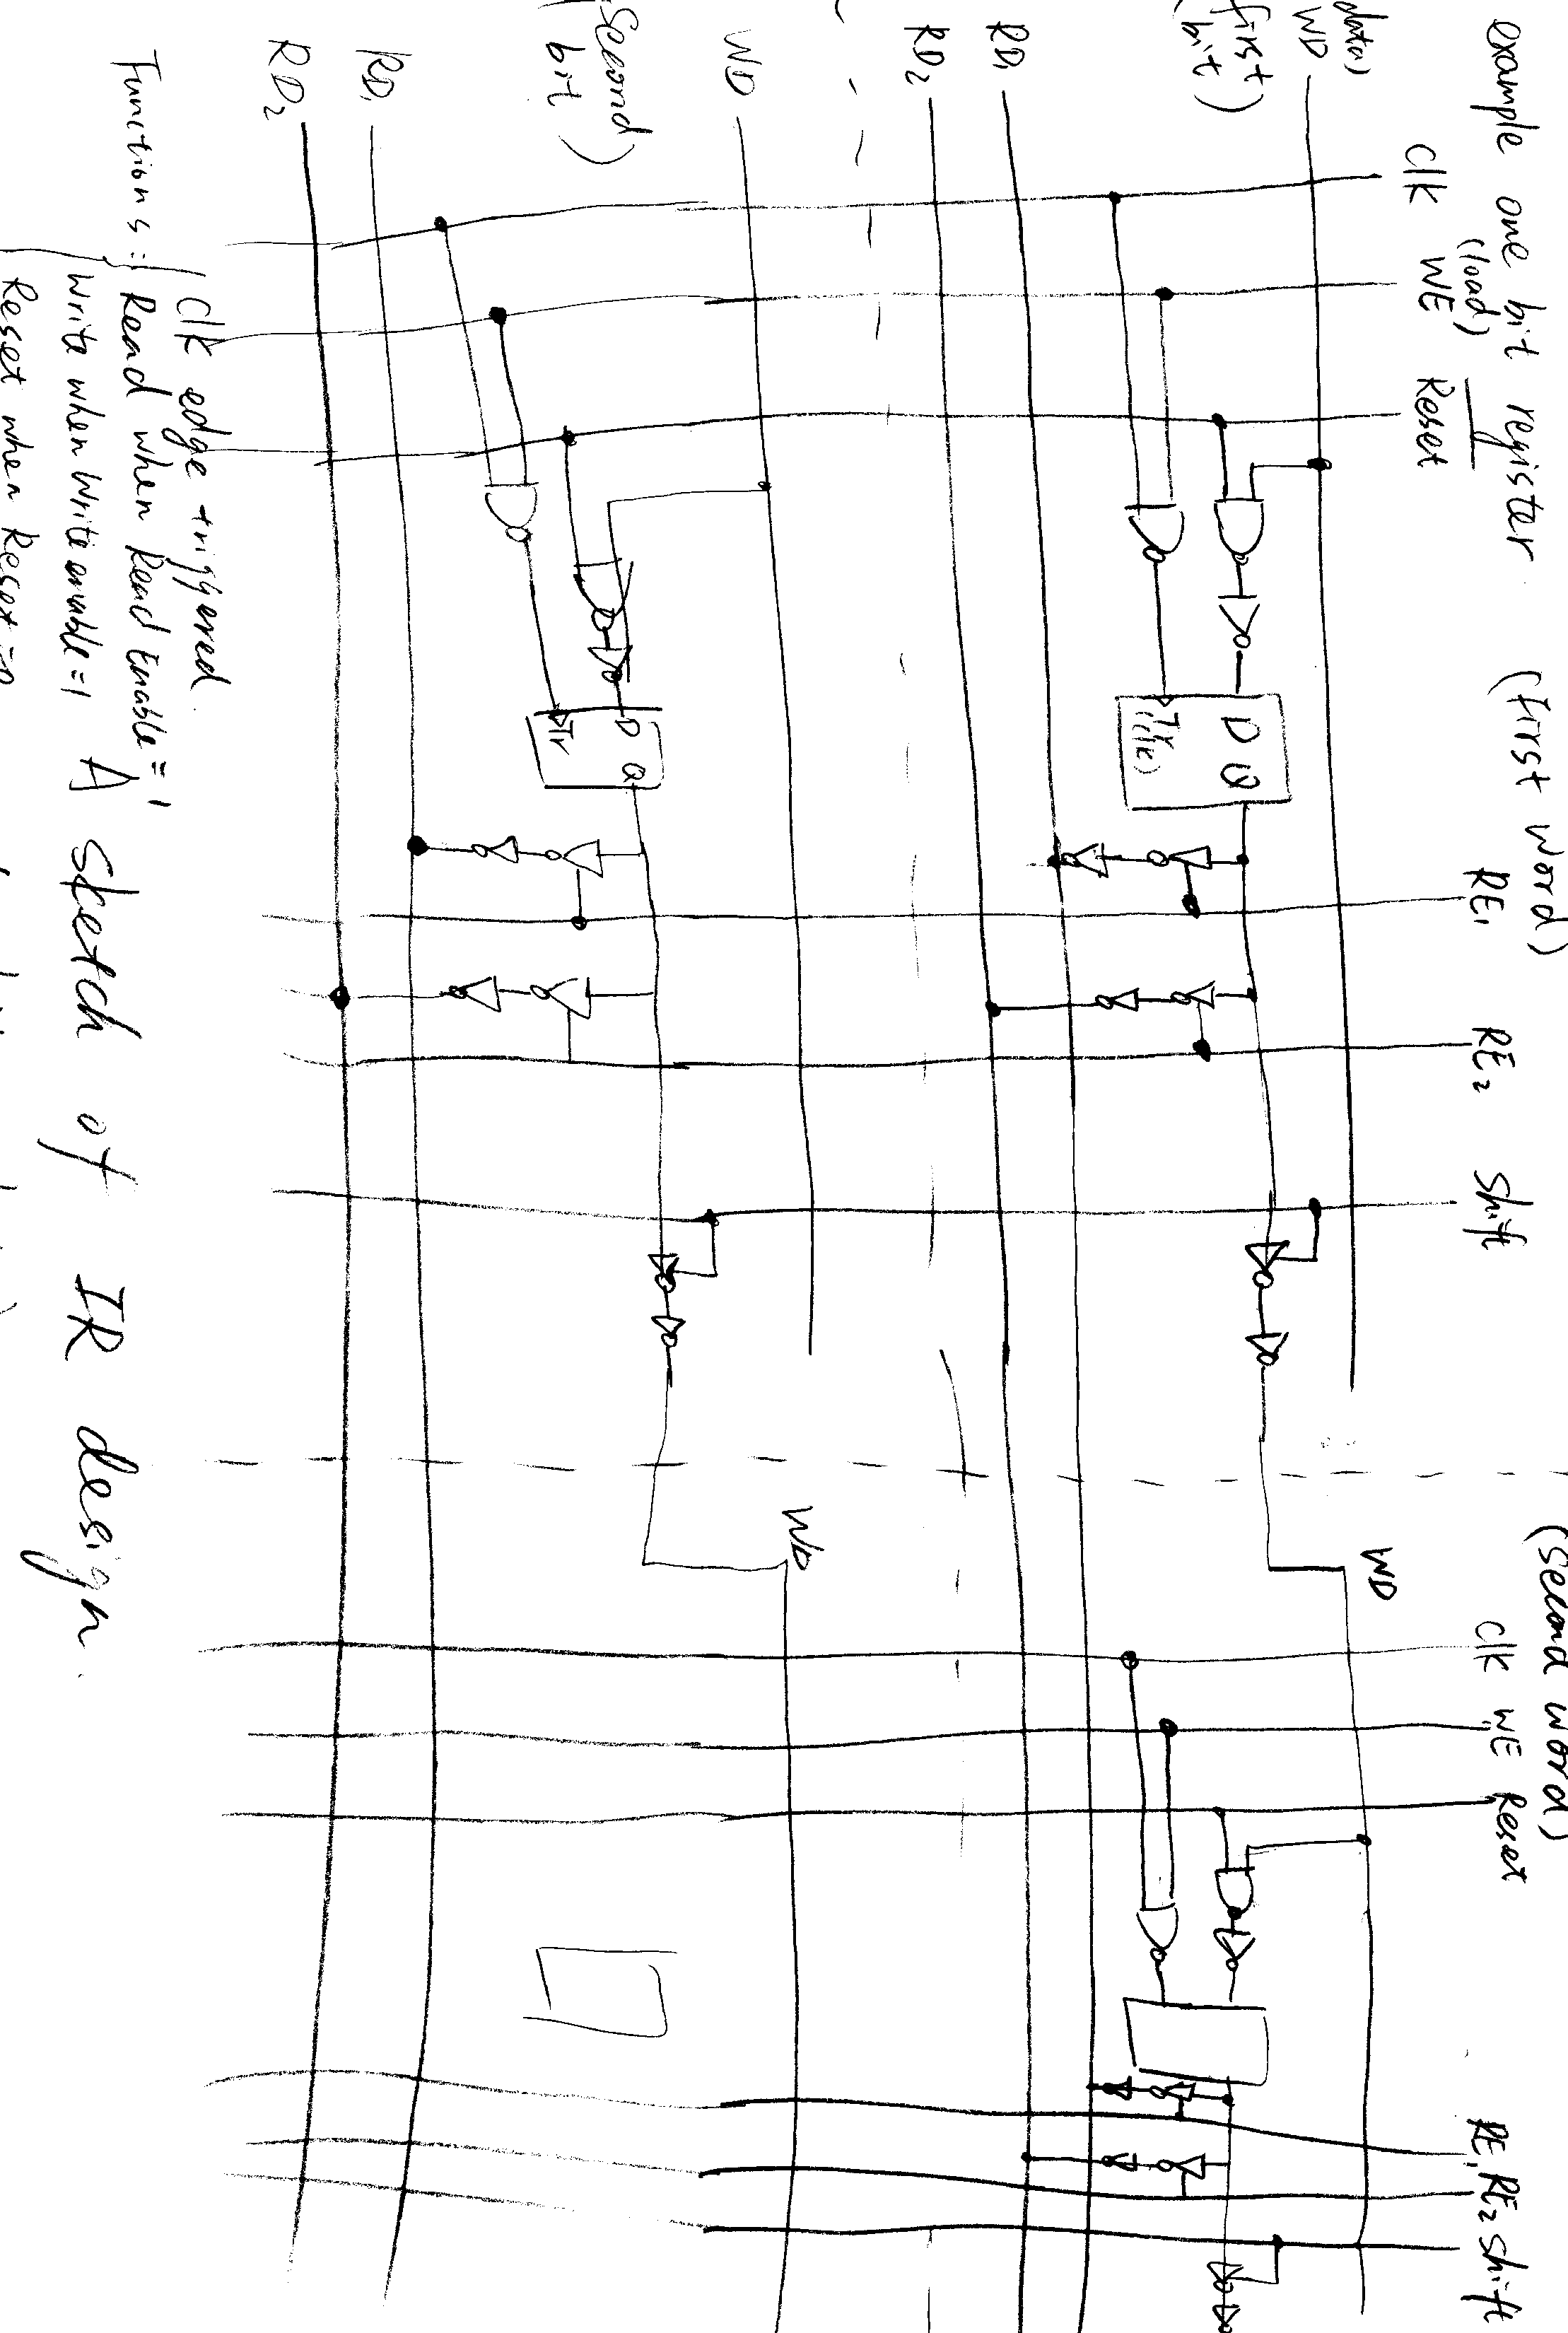 example one bit register
(first word)
(Second word)
(load)
Clk WE Reset RE₁ RE₂ Shift
Clk WE Reset RE₁ RE₂ Shift
data)
WD
WD
first
bit )
D Q
Tr
(clk)
RD₁
RD₂
WD
WD
(Second
bit )
D Q
Tr
RD₁
RD₂
Functions: Clk edge triggered.
Read when Read Enable=1
Write when Write enable=1
Reset when Reset=0
A sketch of IR design.